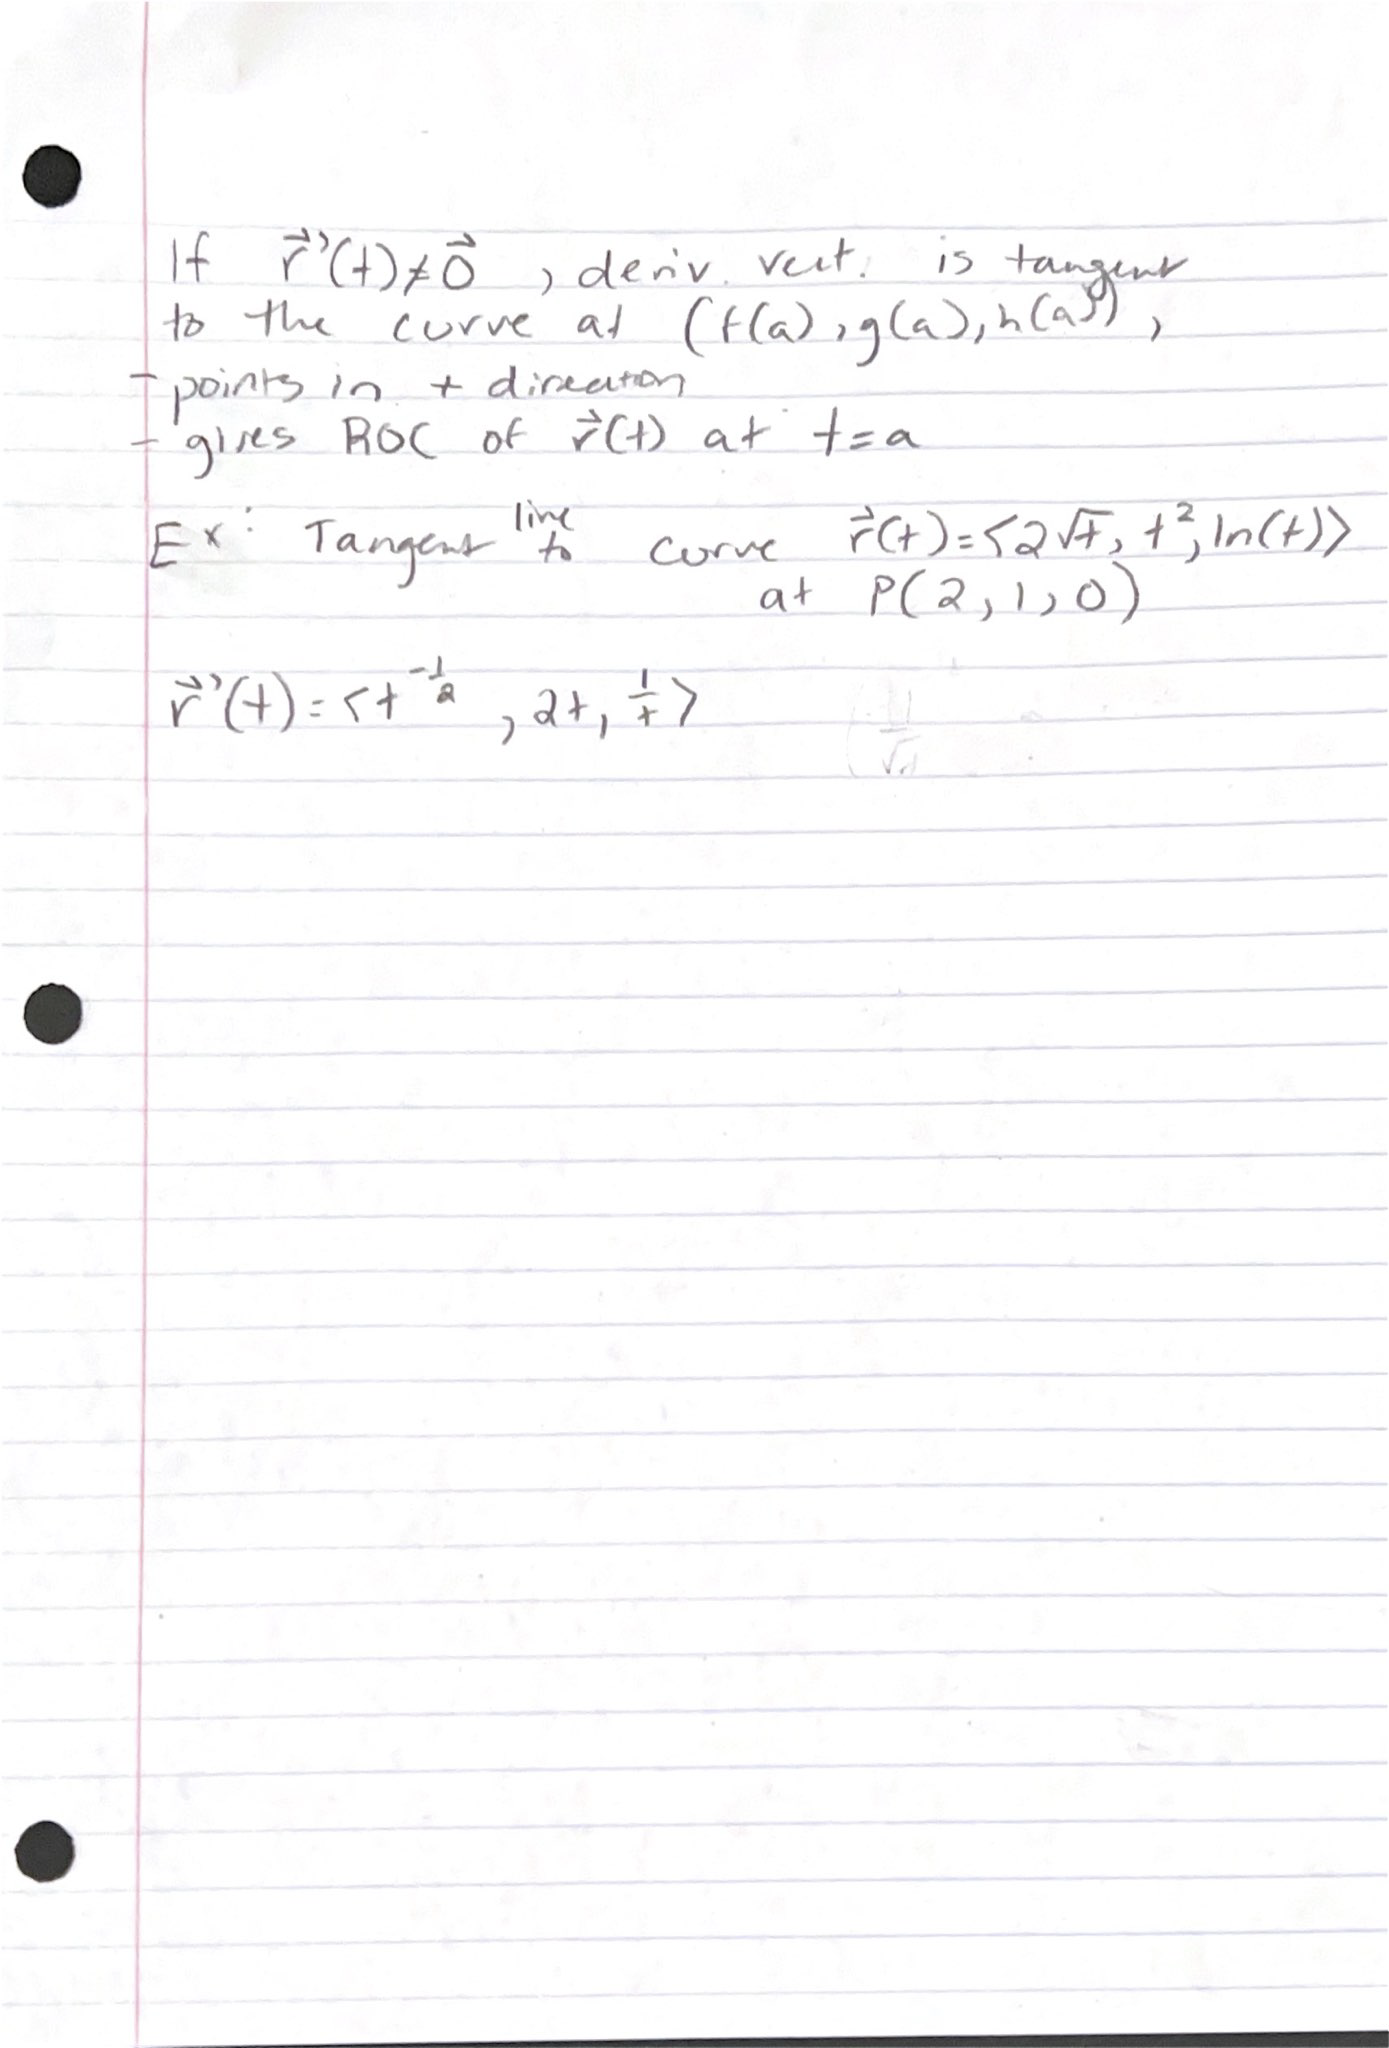 If r⃗'(t)≠0⃗, deriv. vect. is tangent
to the curve at (f(a), g(a), h(a)),
- points in + direction
- gives ROC of r⃗(t) at t=a
Ex: Tangent line to curve r⃗(t)=<2√t, t², ln(t)>
at P(2, 1, 0)
r⃗'(t)=<t^(-1/2), 2t, 1/t>